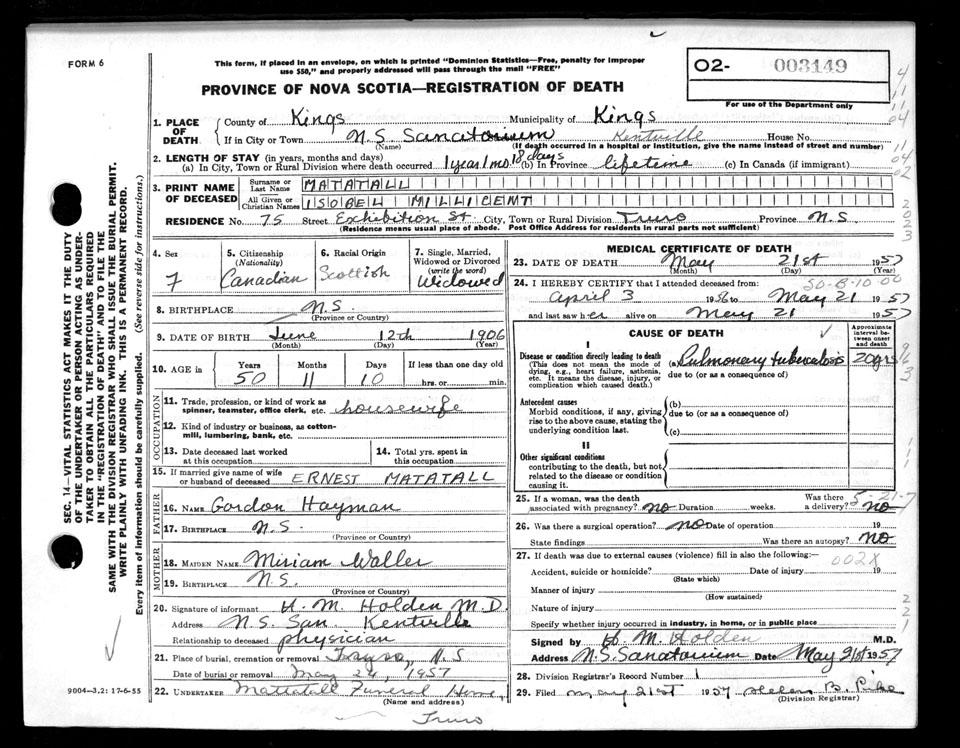 FORM 6
This form, if placed in an envelope, on which is printed "Dominion Statistics—Free, penalty for improper
use $50," and properly addressed will pass through the mail "FREE"
O2- 003149
For use of the Department only
PROVINCE OF NOVA SCOTIA—REGISTRATION OF DEATH
1. PLACE OF DEATH { County of Kings Municipality of Kings
If in City or Town N.S. Sanatorium Kentville House No.
(Name) (If death occurred in a hospital or institution, give the name instead of street and number)
2. LENGTH OF STAY (in years, months and days)
(a) In City, Town or Rural Division where death occurred 1 year 1 mo. 18 days (b) In Province lifetime (c) In Canada (if immigrant)
3. PRINT NAME OF DECEASED { Surname or Last Name MATATALL
All Given or Christian Names ISOBEL MILLICEMT
RESIDENCE No. 75 Street Exhibition St City, Town or Rural Division Truro Province N.S.
(Residence means usual place of abode. Post Office Address for residents in rural parts not sufficient)
4. Sex 7
5. Citizenship (Nationality) Canadian
6. Racial Origin Scottish
7. Single, Married, Widowed or Divorced (write the word) Widowed
8. BIRTHPLACE N.S.
(Province or Country)
9. DATE OF BIRTH June 12th 1906
(Month) (Day) (Year)
10. AGE in Years Months Days If less than one day old
50 11 10 hrs. or min.
OCCUPATION
11. Trade, profession, or kind of work as
spinner, teamster, office clerk, etc. housewife
12. Kind of industry or business, as cotton-
mill, lumbering, bank, etc.
13. Date deceased last worked at this occupation
14. Total yrs. spent in this occupation
15. If married give name of wife
or husband of deceased ERNEST MATATALL
FATHER
16. NAME Gordon Hayman
17. BIRTHPLACE N.S.
(Province or Country)
MOTHER
18. MAIDEN NAME Miriam Waller
19. BIRTHPLACE N.S.
(Province or Country)
20. Signature of informant H. M. Holden M.D.
Address N.S. San. Kentville
Relationship to deceased physician
21. Place of burial, cremation or removal Truro, N.S
Date of burial or removal May 24, 1957
22. UNDERTAKER Mattatall Funeral Home,
(Name and address)
Truro
MEDICAL CERTIFICATE OF DEATH
23. DATE OF DEATH May 21st 1957
(Month) (Day) (Year)
24. I HEREBY CERTIFY that I attended deceased from:
50-8-10-00
April 3 1956 to May 21 1957
and last saw her alive on May 21 1957
CAUSE OF DEATH
Approximate interval between onset and death
I
Disease or condition directly leading to death
(This does not mean the mode of
dying, e.g., heart failure, asthenia,
etc. It means the disease, injury, or
complication which caused death.)
(a) Pulmonary tuberculosis 20 yrs
due to (or as a consequence of)
Antecedent causes
Morbid conditions, if any, giving
rise to the above cause, stating the
underlying condition last.
(b)
due to (or as a consequence of)
(c)
II
Other significant conditions
contributing to the death, but not
related to the disease or condition
causing it.
25. If a woman, was the death Was there 5-21-7
associated with pregnancy? no Duration weeks. a delivery? no
26. Was there a surgical operation? no Date of operation 19
State findings Was there an autopsy? no
27. If death was due to external causes (violence) fill in also the following:—
002X
Accident, suicide or homicide? Date of injury 19
(State which)
Manner of injury
(How sustained)
Nature of injury
Specify whether injury occurred in industry, in home, or in public place
Signed by H. M. Holden M.D.
Address N.S. Sanatorium Date May 21st 1957
28. Division Registrar's Record Number 1
29. Filed May 21st 1957 Helen B. Pike
(Division Registrar)
SEC. 14—VITAL STATISTICS ACT MAKES IT THE DUTY
OF THE UNDERTAKER OR PERSON ACTING AS UNDER-
TAKER TO OBTAIN ALL THE PARTICULARS REQUIRED
IN THE "REGISTRATION OF DEATH" AND TO FILE THE
SAME WITH THE DIVISION REGISTRAR WHO SHALL ISSUE THE BURIAL PERMIT.
WRITE PLAINLY WITH UNFADING INK. THIS IS A PERMANENT RECORD.
Every item of information should be carefully supplied. (See reverse side for instructions.)
9004-3.2: 17-6-55